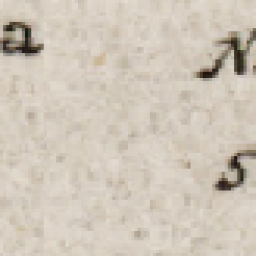 a N
5